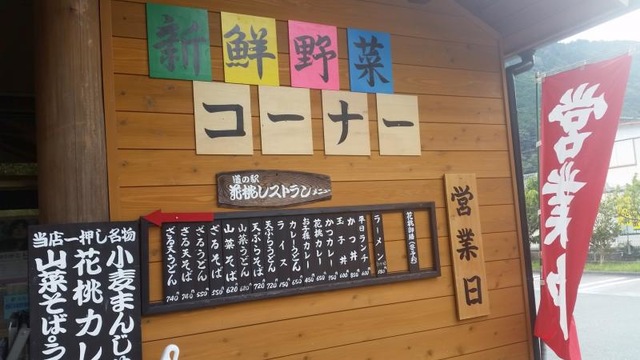 新鮮野菜
コーナー
道の駅
花桃レストラン メニュー
花桃御膳
ラーメン
平日ランチ
かつ丼
玉子丼
かつカレー
花桃カレー
お子様カレー
カレー
ライス
天ぷらうどん
天ぷらそば
山菜うどん
山菜そば
ざるそば
ざるうどん
ざる天そば
ざる天うどん
営業日
営業中
当店一押し名物
小麦まんじゅ
花桃カレ
山菜そば・う